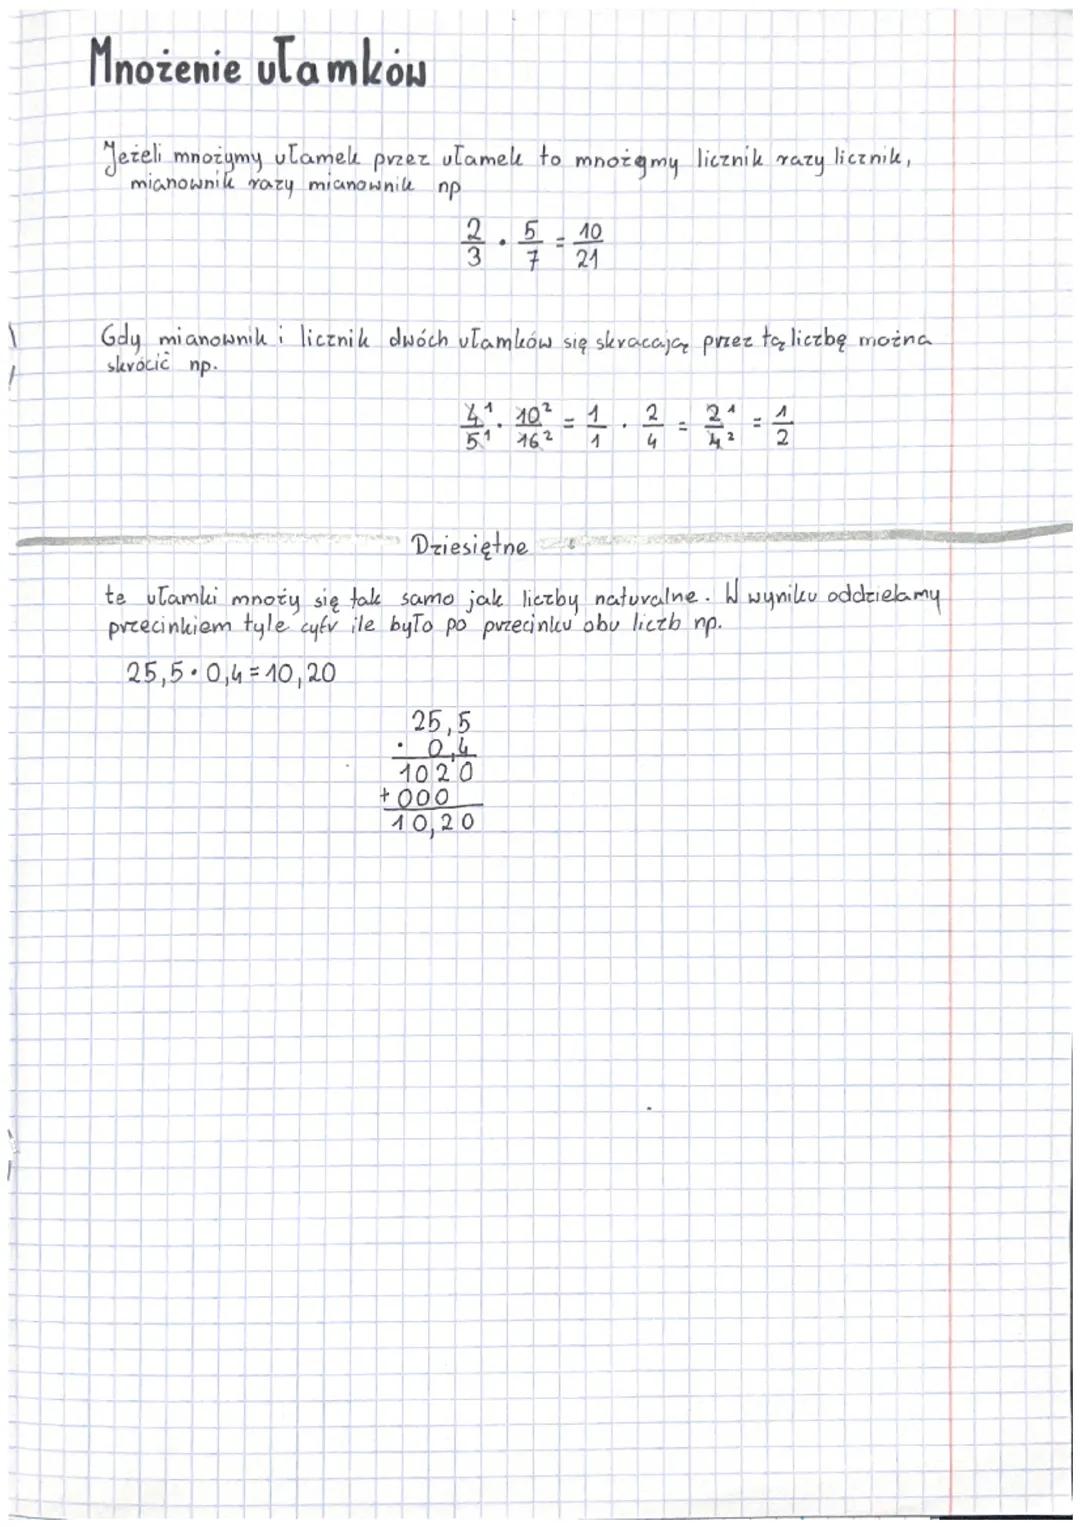 Mnożenie ułamków
Jeżeli mnożymy ułamek przez ułamek to mnożymy licznik razy licznik,
mianownik razy mianownik np
2/3 · 5/7 = 10/21
Gdy mianownik i licznik dwóch ułamków się skracają przez tą liczbę można
skrócić np.
4¹/5¹ · 10²/16² = 1/1 · 2/4 = 2¹/4² = 1/2
Dziesiętne
te ułamki mnoży się tak samo jak liczby naturalne. W wyniku oddzielamy
przecinkiem tyle cyfr ile było po przecinku obu liczb np.
25,5 · 0,4 = 10,20
25,5
· 0,4
1020
+ 000
10,20